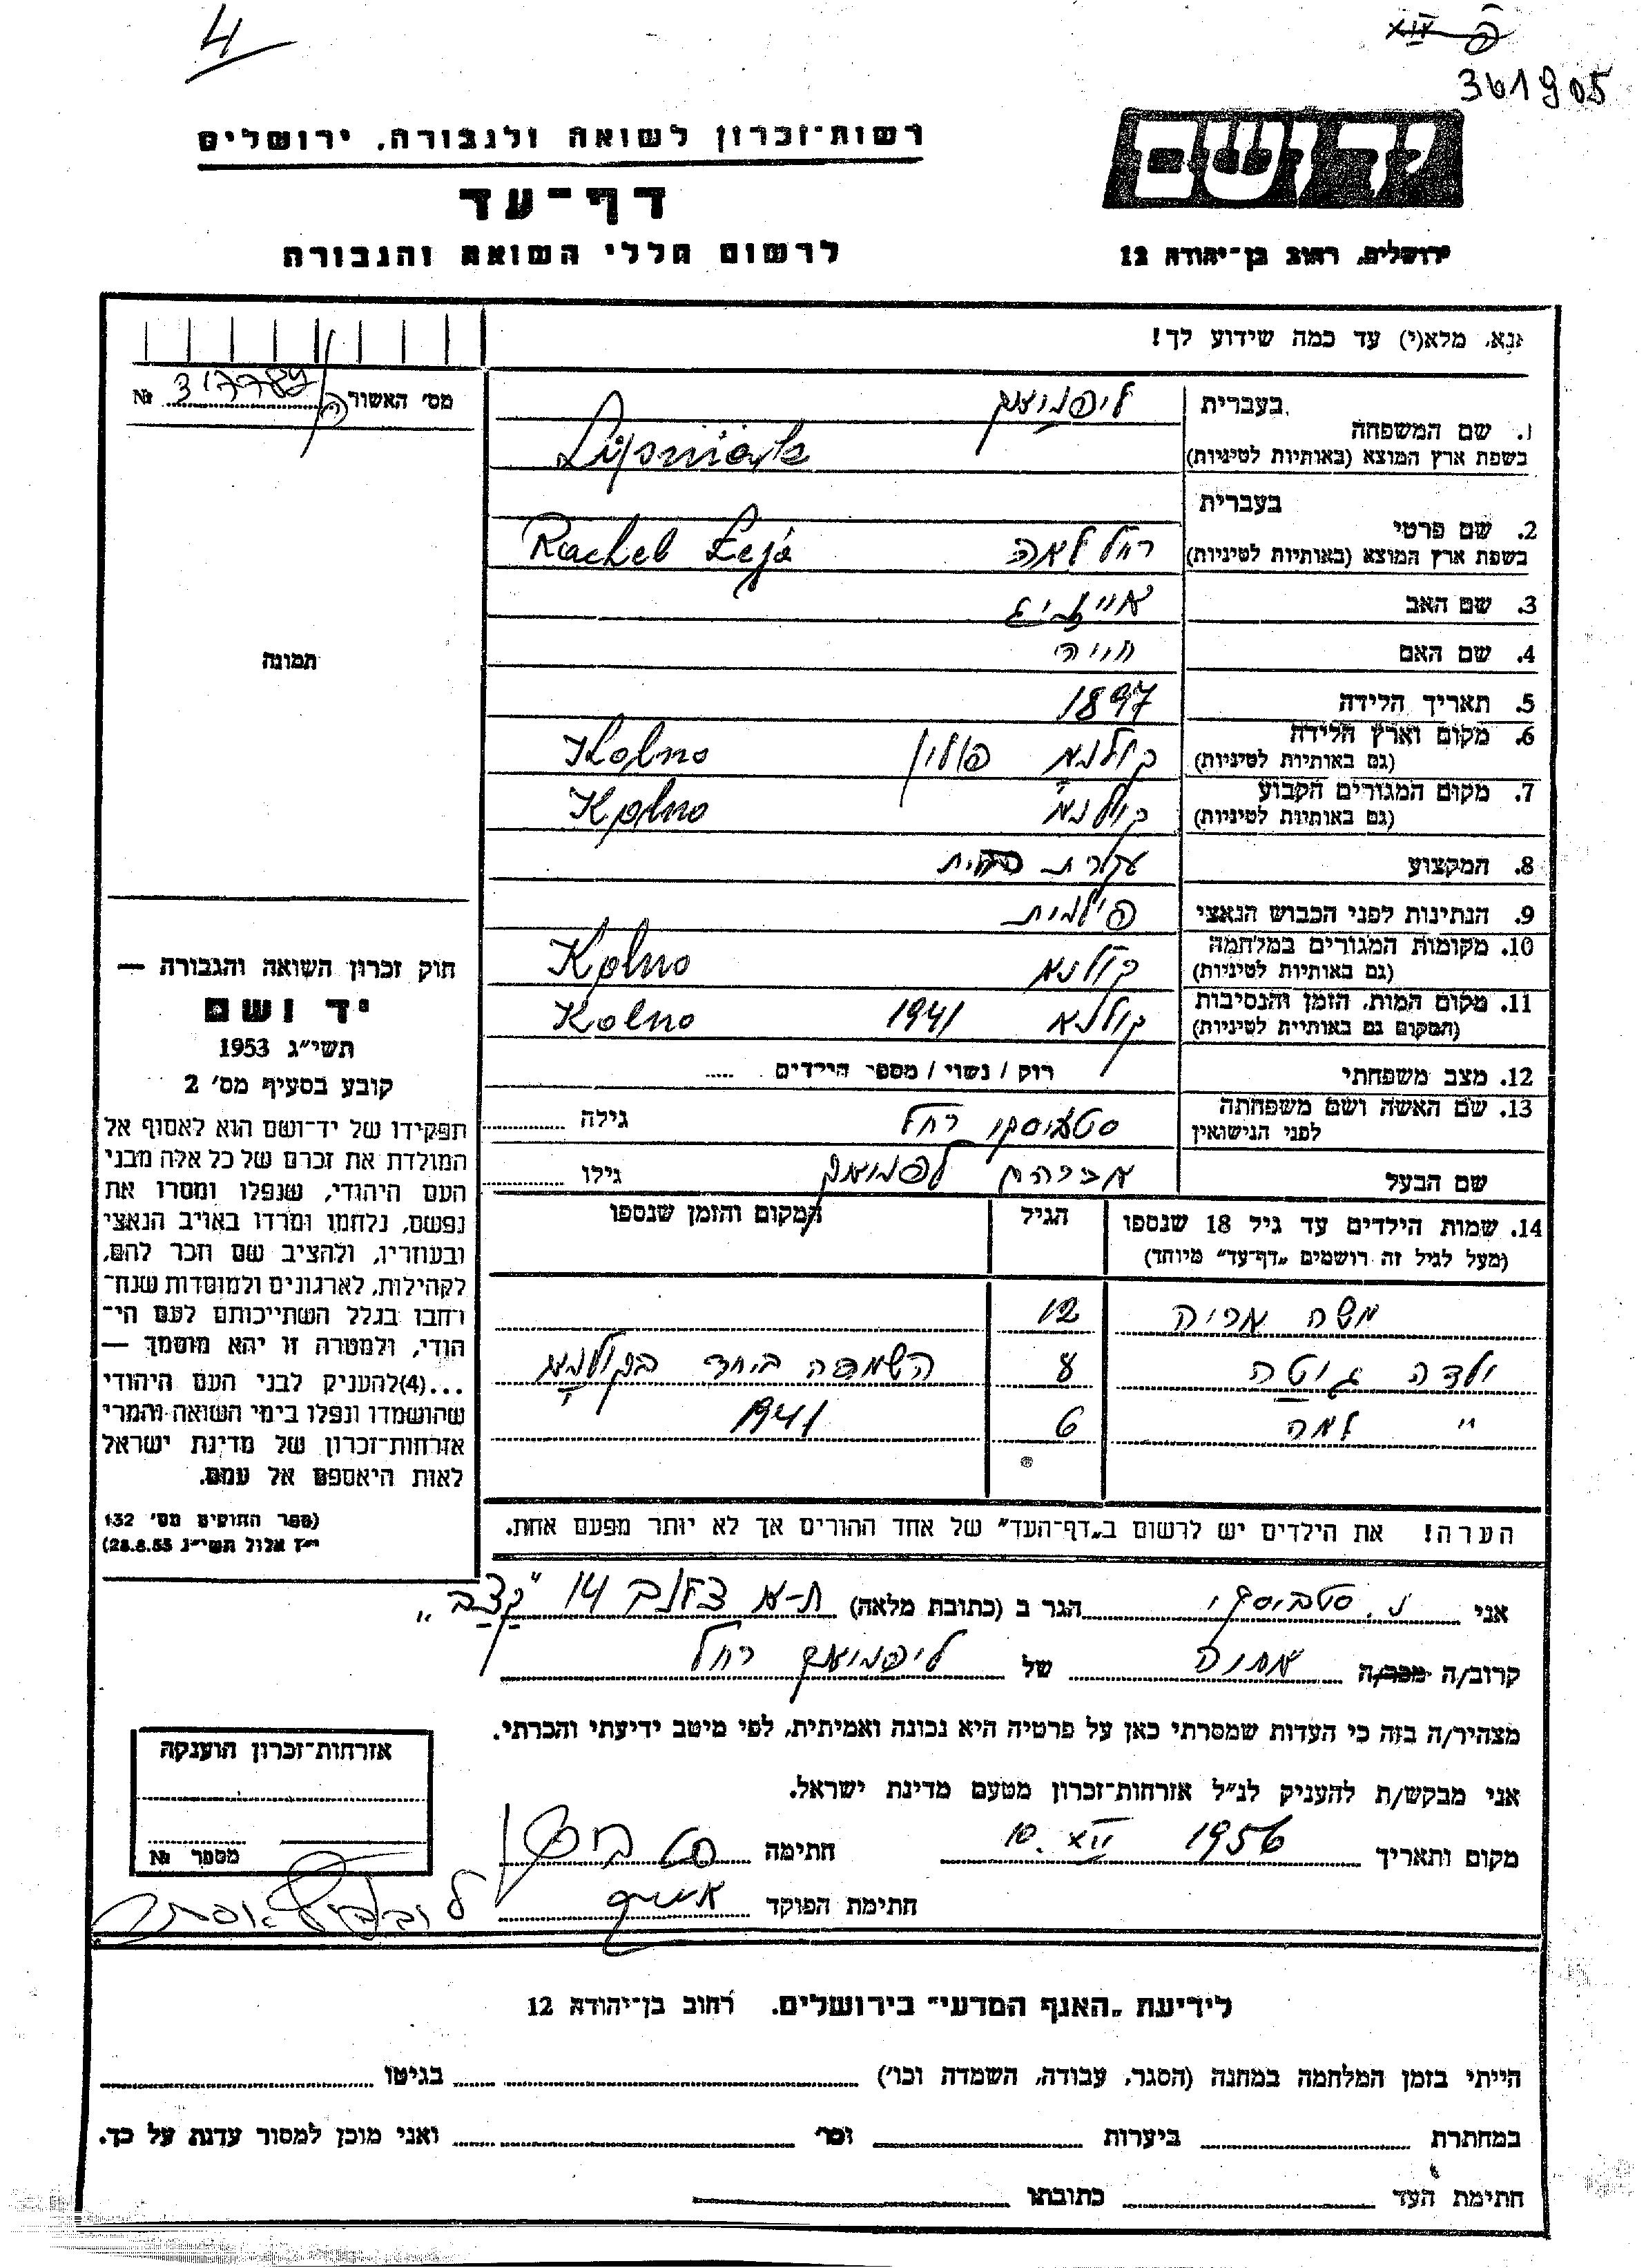 4
361905
יד ושם
רשות־זכרון לשואה ולגבורה, ירושלים
דף־עד
לרשום חללי השואה והגבורה
ירושלים, רחוב בן־יהודה 12
אנא, מלא(י) עד כמה שידוע לך!
מס' האשור № 317789
1. שם המשפחה
בעברית ליפניאק
בשפת ארץ המוצא (באותיות לטיניות) Lipniak
2. שם פרטי
בעברית
בשפת ארץ המוצא (באותיות לטיניות) רחל לאה Rachel Leja
3. שם האב אייזיג
4. שם האם חיה
5. תאריך הלידה 1897
6. מקום וארץ הלידה קולנא פולין Kolno
(גם באותיות לטיניות)
7. מקום המגורים הקבוע קולנא Kolno
(גם באותיות לטיניות)
8. המקצוע עקרת בית
9. הנתינות לפני הכבוש הנאצי פולנית
10. מקומות המגורים במלחמה קולנא Kolno
(גם באותיות לטיניות)
11. מקום המות, הזמן והנסיבות קולנא 1941 Kolno
(המקום גם באותיות לטיניות)
12. מצב משפחתי רוק / נשוי / מספר הילדים .....
13. שם האשה ושם משפחתה רחל גילה
לפני הנישואין
שם הבעל אברהם ליפניאק גילו
14. שמות הילדים עד גיל 18 שנספו הגיל המקום והזמן שנספו
(מעל לגיל זה רושמים „דף־עד" מיוחד)
משה אריה 12
ילדה גיטה 8 השמדה ביחד בקולנא
" 6 1941
הערה! את הילדים יש לרשום ב„דף־העד" של אחד ההורים אך לא יותר מפעם אחת.
תמונה
חוק זכרון השואה והגבורה —
יד ושם
תשי״ג 1953
קובע בסעיף מס' 2
תפקידו של יד־ושם הוא לאסוף אל
המולדת את זכרם של כל אלה מבני
העם היהודי, שנפלו ומסרו את
נפשם, נלחמו ומרדו באויב הנאצי
ובעוזריו, ולהציב שם וזכר להם,
לקהילות, לארגונים ולמוסדות שנח־
רחבו בגלל השתייכותם לעם הי־
הודי, ולמטרה זו יהא מוסמך —
...(4)להעניק לבני העם היהודי
שהושמדו ונפלו בימי השואה והמרי
אזרחות־זכרון של מדינת ישראל
לאות היאספם אל עמם.
(ספר החוקים מס' 132
י״ז אלול תשי״ג 28.8.53)
אני נ. סטביסקי הגר ב (כתובת מלאה) ת-א 14 "קצב"
קרוב/ה מכר/ה אחיה של ליפניאק רחל
מצהיר/ה בזה כי העדות שמסרתי כאן על פרטיה היא נכונה ואמיתית, לפי מיטב ידיעתי והכרתי.
אני מבקש/ת להעניק לנ״ל אזרחות־זכרון מטעם מדינת ישראל.
מקום ותאריך 1956 XII 10. חתימה
חתימת הפוקד
אזרחות־זכרון הוענקה
מספר №
לידיעת „האגף המדעי" בירושלים. רחוב בן־יהודה 12
הייתי בזמן המלחמה במחנה (הסגר, עבודה, השמדה וכו') בגיטו
במחתרת ביערות וכו' ואני מוכן למסור עדות על כך.
חתימת העד כתובתו